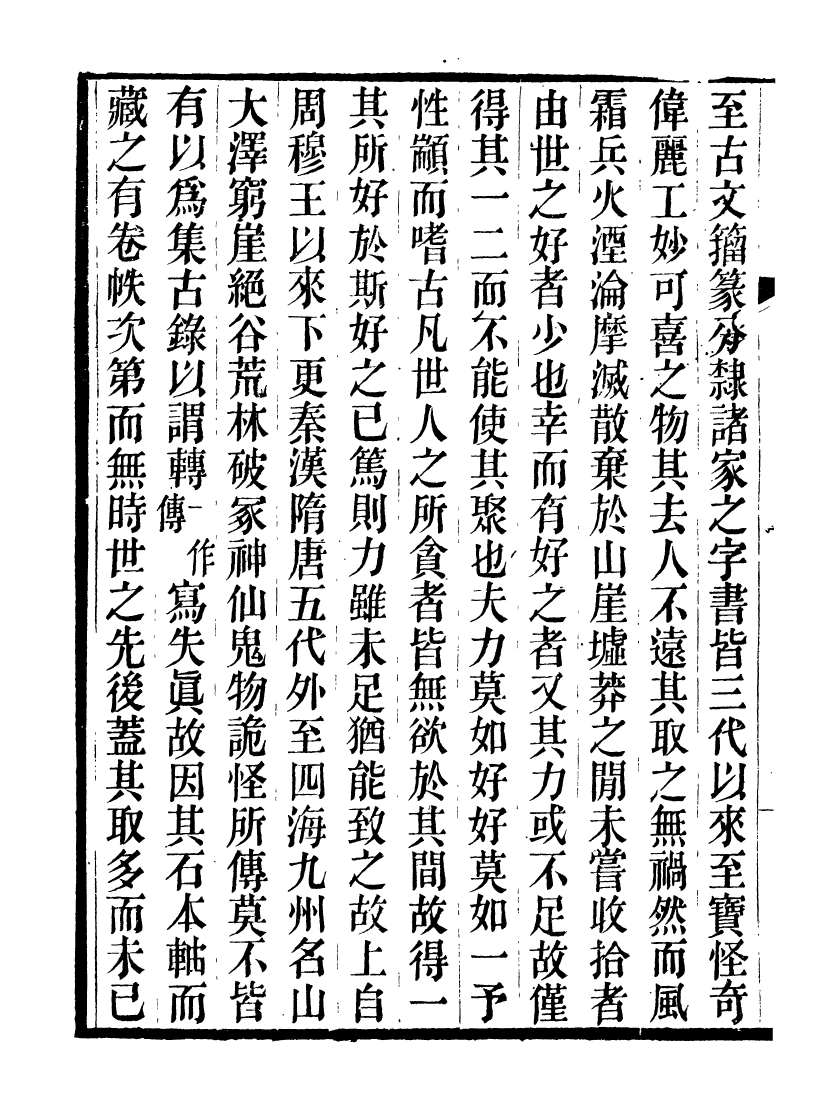 至古文籒篆分隸諸家之字書皆三代以來至寶怪奇
偉麗工妙可喜之物其去人不遠其取之無禍然而風
霜兵火湮淪摩滅散棄於山崖墟莽之閒未嘗收拾者
由世之好者少也幸而有好之者又其力或不足故僅
得其一二而不能使其聚也夫力莫如好好莫如一予
性顓而嗜古凡世人之所貪者皆無欲於其間故得一
其所好於斯好之已篤則力雖未足猶能致之故上自
周穆王以來下更秦漢隋唐五代外至四海九州名山
大澤窮崖絕谷荒林破冢神仙鬼物詭怪所傳莫不皆
有以爲集古錄以謂轉一作傳寫失眞故因其石本軸而
藏之有卷帙次第而無時世之先後蓋其取多而未已